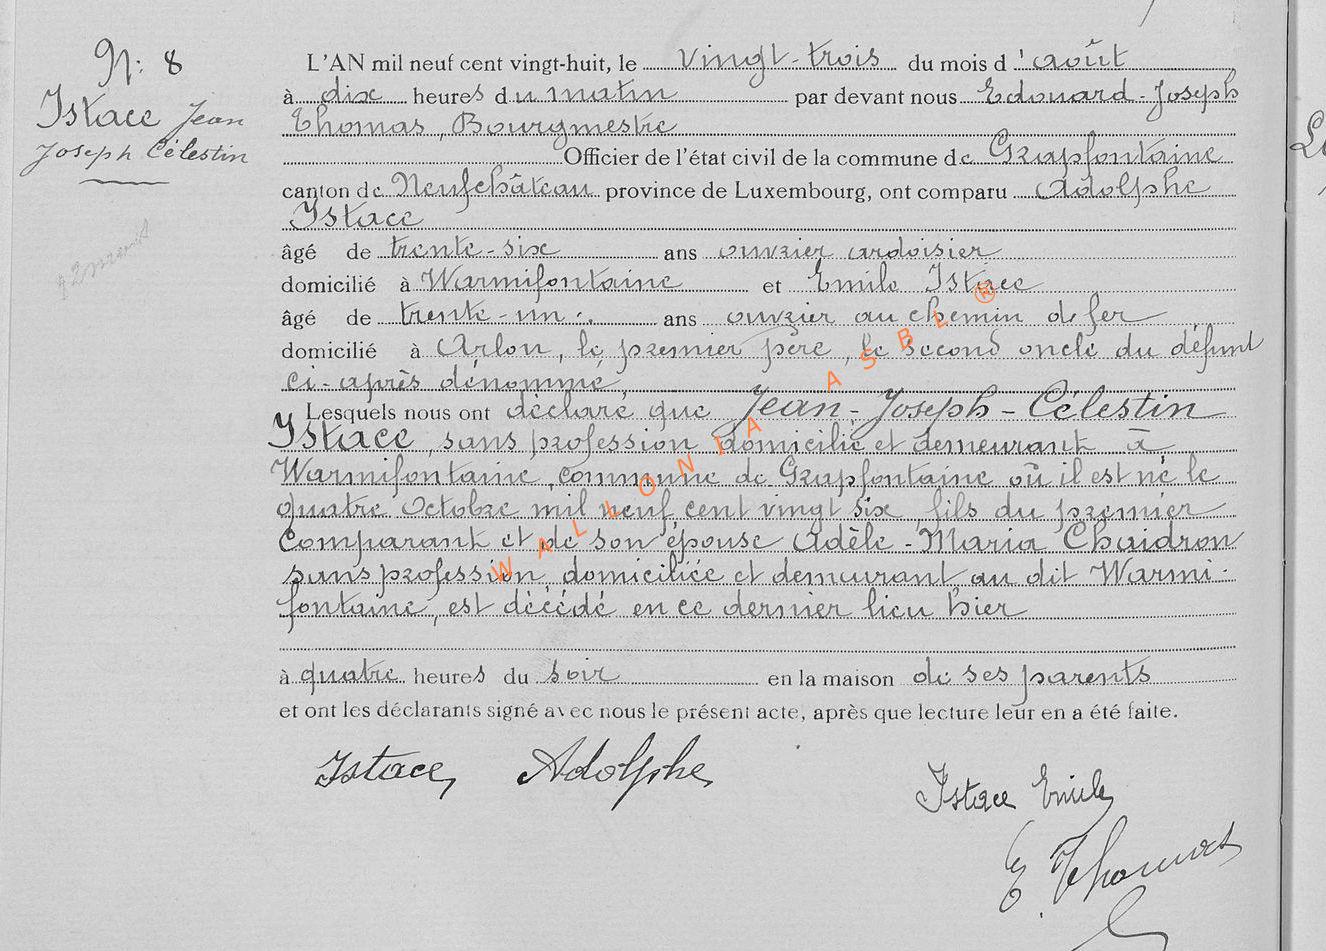 N: 8
Istace Jean
Joseph Célestin
L'AN mil neuf cent vingt-huit, le vingt-trois du mois d'août
à dix heures du matin par devant nous Edouard-Joseph
Thomas, Bourgmestre
Officier de l'état civil de la commune de Grapfontaine
canton de Neufchâteau province de Luxembourg, ont comparu Adolphe
Istace
âgé de trente-six ans ouvrier ardoisier
domicilié à Warmifontaine et Emile Istace
âgé de trente-un ans ouvrier au chemin de fer
domicilié à Arlon, le premier père, le second oncle du défunt
ci-après dénommé
Lesquels nous ont déclaré que Jean-Joseph-Célestin
Istace, sans profession domicilié et demeurant à
Warmifontaine, commune de Grapfontaine où il est né le
quatre Octobre mil neuf cent vingt six, fils du premier
Comparant et de son épouse Adèle-Maria Chaidron
sans profession, domiciliée et demeurant au dit Warmi-
fontaine, est décédé en ce dernier lieu hier
à quatre heures du soir en la maison de ses parents
et ont les déclarants signé avec nous le présent acte, après que lecture leur en a été faite.
Istace, Adolphe,
Istace Emile
E. Thomas
WALLONIA ASBL ®